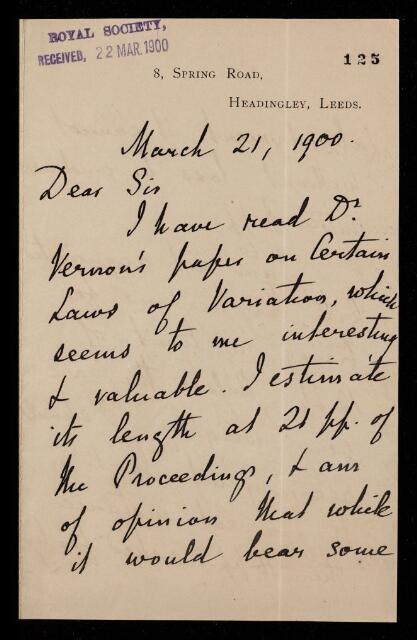 ROYAL SOCIETY,
RECEIVED, 22 MAR. 1900
125
8, Spring Road,
Headingley, Leeds.
March 21, 1900.
Dear Sir
I have read Dr.
Vernon's paper on Certain
Laws of Variation, which
seems to me interesting
& valuable. I estimate
its length at 21 pp. of
the Proceedings, & am
of opinion that while
it would bear some